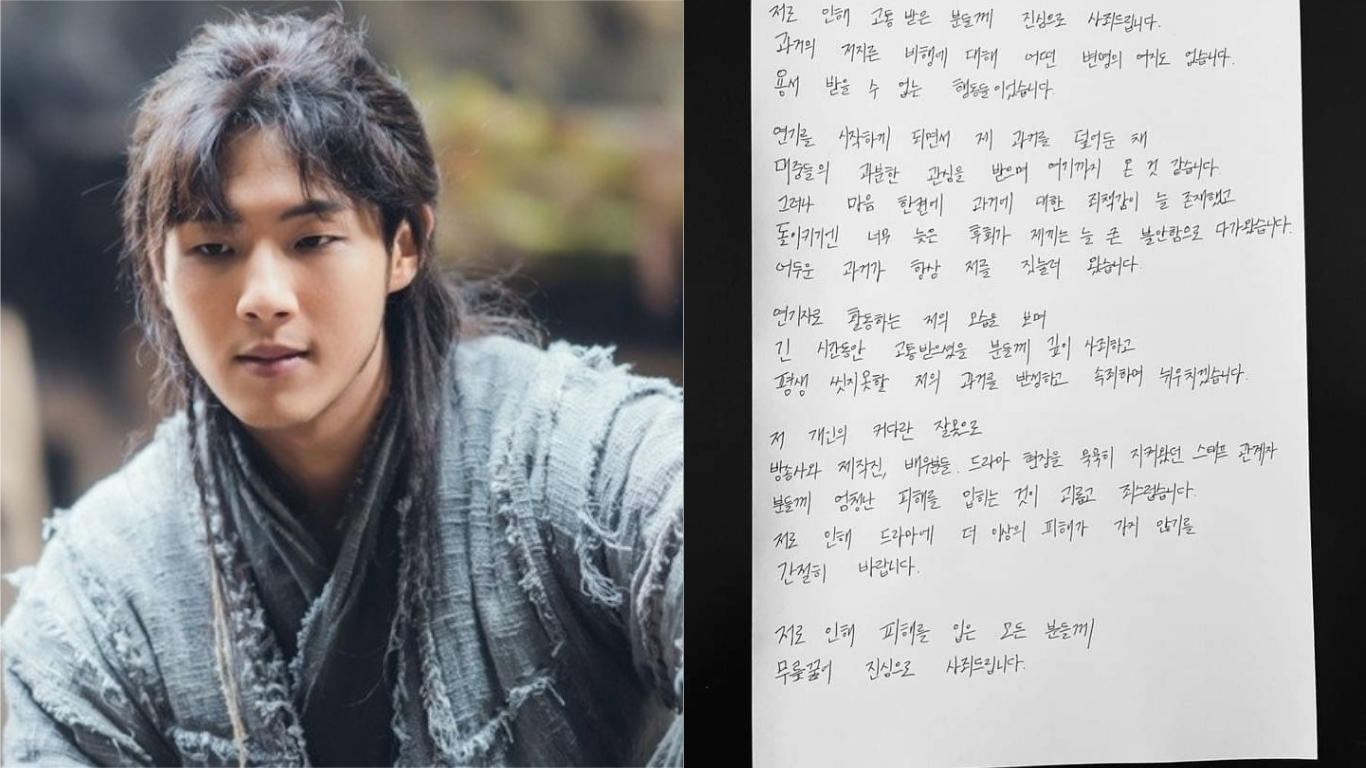 저로 인해 고통 받은 분들께 진심으로 사죄드립니다.
과거의 저지른 비행에 대해 어떤 변명의 여지도 없습니다.
용서 받을 수 없는 행동들이었습니다.
연기를 시작하게 되면서 제 과거를 덮어둔 채
대중들의 과분한 관심을 받으며 여기까지 온 것 같습니다.
그러나 마음 한켠에 과거에 대한 죄책감이 늘 존재했고
돌이키기엔 너무 늦은 후회가 제게는 늘 큰 불안함으로 다가왔습니다.
어두운 과거가 항상 저를 짓눌러 왔습니다.
연기자로 활동하는 저의 모습을 보며
긴 시간동안 고통받으셨을 분들께 깊이 사죄하고
평생 씻지못할 저의 과거를 반성하고 속죄하며 뉘우치겠습니다.
저 개인의 커다란 잘못으로
방송사와 제작진, 배우분들, 드라마 현장을 묵묵히 지켜왔던 스태프 관계자
분들께 엄청난 피해를 입히는 것이 괴롭고 죄스럽습니다.
저로 인해 드라마에 더 이상의 피해가 가지 않기를
간절히 바랍니다.
저로 인해 피해를 입은 모든 분들께
무릎꿇어 진심으로 사죄드립니다.